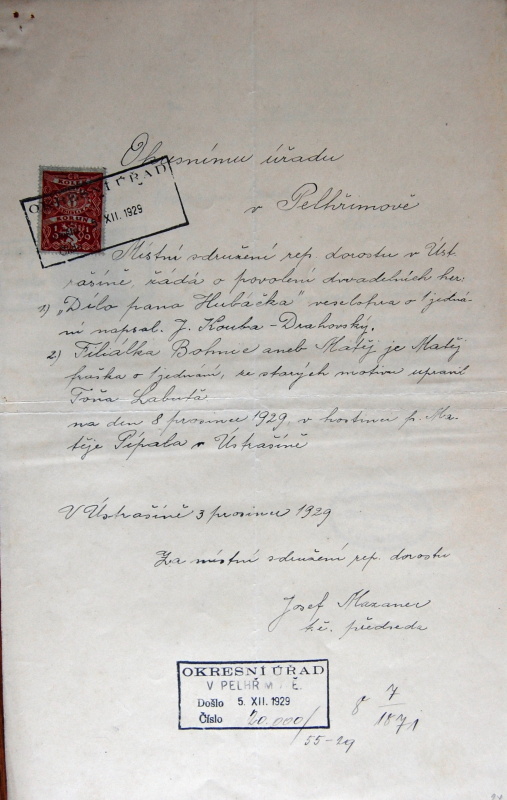 Okresnímu úřadu
v Pelhřimově
KOLEK
KORUN
OKRESNÍ ÚŘAD
XII. 1929
Místní sdružení rep. dorostu v Úst-
rašíně, žádá o povolení divadelních her:
1) „Dílo pana Hubáčka" veselohra o 1 jedná-
ní napsal. J. Kouba-Drahovský.
2) Filiálka Bohnic aneb Matěj je Matěj
fraška o 1 jednání, ze starých motivu upravil
Tóňa Labuťa
na den 8 prosince 1929, v hostinci p. Ma-
těje Pípala v Ústrašíně
V Ústrašíně 3 prosince 1929
Za místní sdružení rep. dorostu
Josef Mazanec
předseda
OKRESNÍ ÚŘAD
V PELHŘIMOVĚ.
Došlo 5. XII. 1929
Číslo 20.000/
55-29
8 7/1871